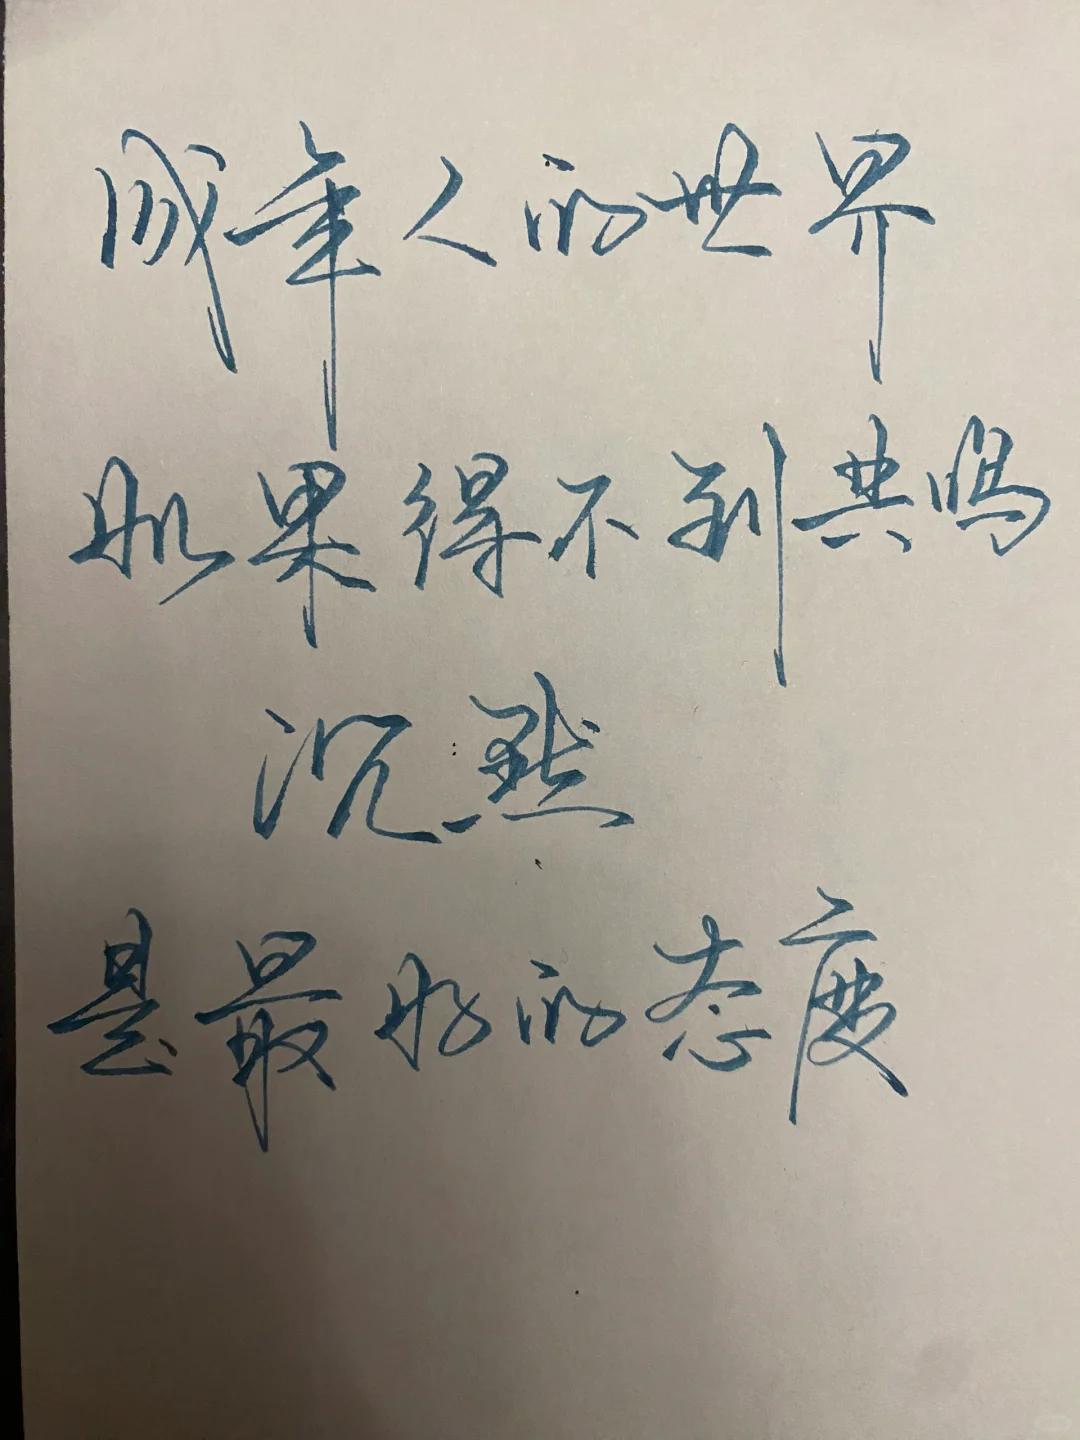 成年人的世界
如果得不到共鸣
沉默
是最好的态度